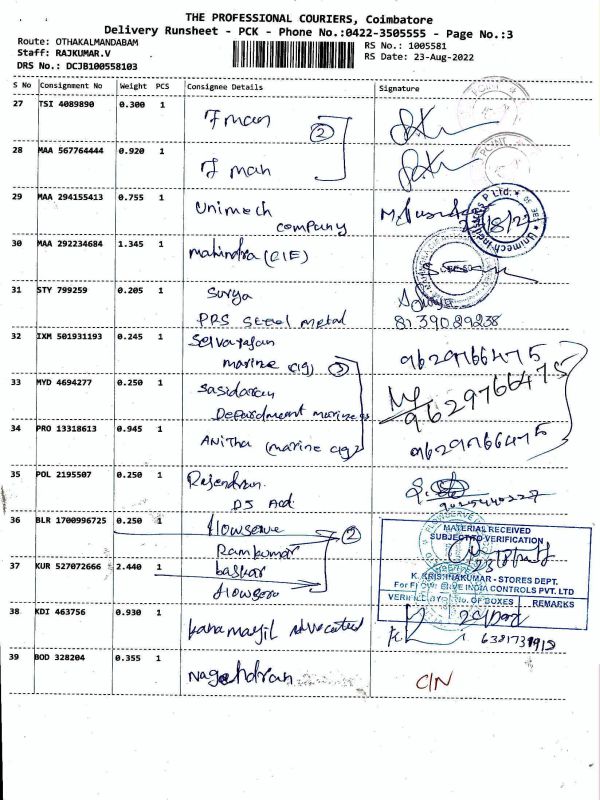 THE PROFESSIONAL COURIERS, Coimbatore
Delivery Runsheet - PCK - Phone No.:0422-3505555 - Page No.:3
Route: OTHAKALMANDABAM
RS No.: 1005581
Staff: RAJKUMAR.V
RS Date: 23-Aug-2022
DRS No.: DCJB100558103
S No Consignment No Weight PCS Consignee Details Signature
27 TSI 4089890 0.300 1 Fman
2
28 MAA 567764444 0.920 1 F man
29 MAA 294155413 0.755 1 unimech
company
Unimech
30 MAA 292234684 1.345 1 mahindra (CIE)
31 STY 799259 0.205 1 Surya
PRS Steel metal 8139029238
32 IXM 501931193 0.245 1 Selvarajan 9629766475
marine
33 MYD 4694277 0.250 1 Sasidaran 9629766475
Department marine
34 PRO 13318613 0.945 1 Anitha (marine 9629766475
35 POL 2195507 0.250 1 Rajendran
36 BLR 1700996725 0.250 1 flowserve 2
Ramkumar
MATERIAL RECEIVED
SUBJECT TO VERIFICATION
37 KUR 527072666 2.440 1 baskar
K. KRISHNAKUMAR - STORES DEPT.
For FLOWSERVE INDIA CONTROLS PVT. LTD
No. OF BOXES REMARKS
38 KDI 463756 0.930 1
39 BOD 328204 0.355 1 Nagendran C/N